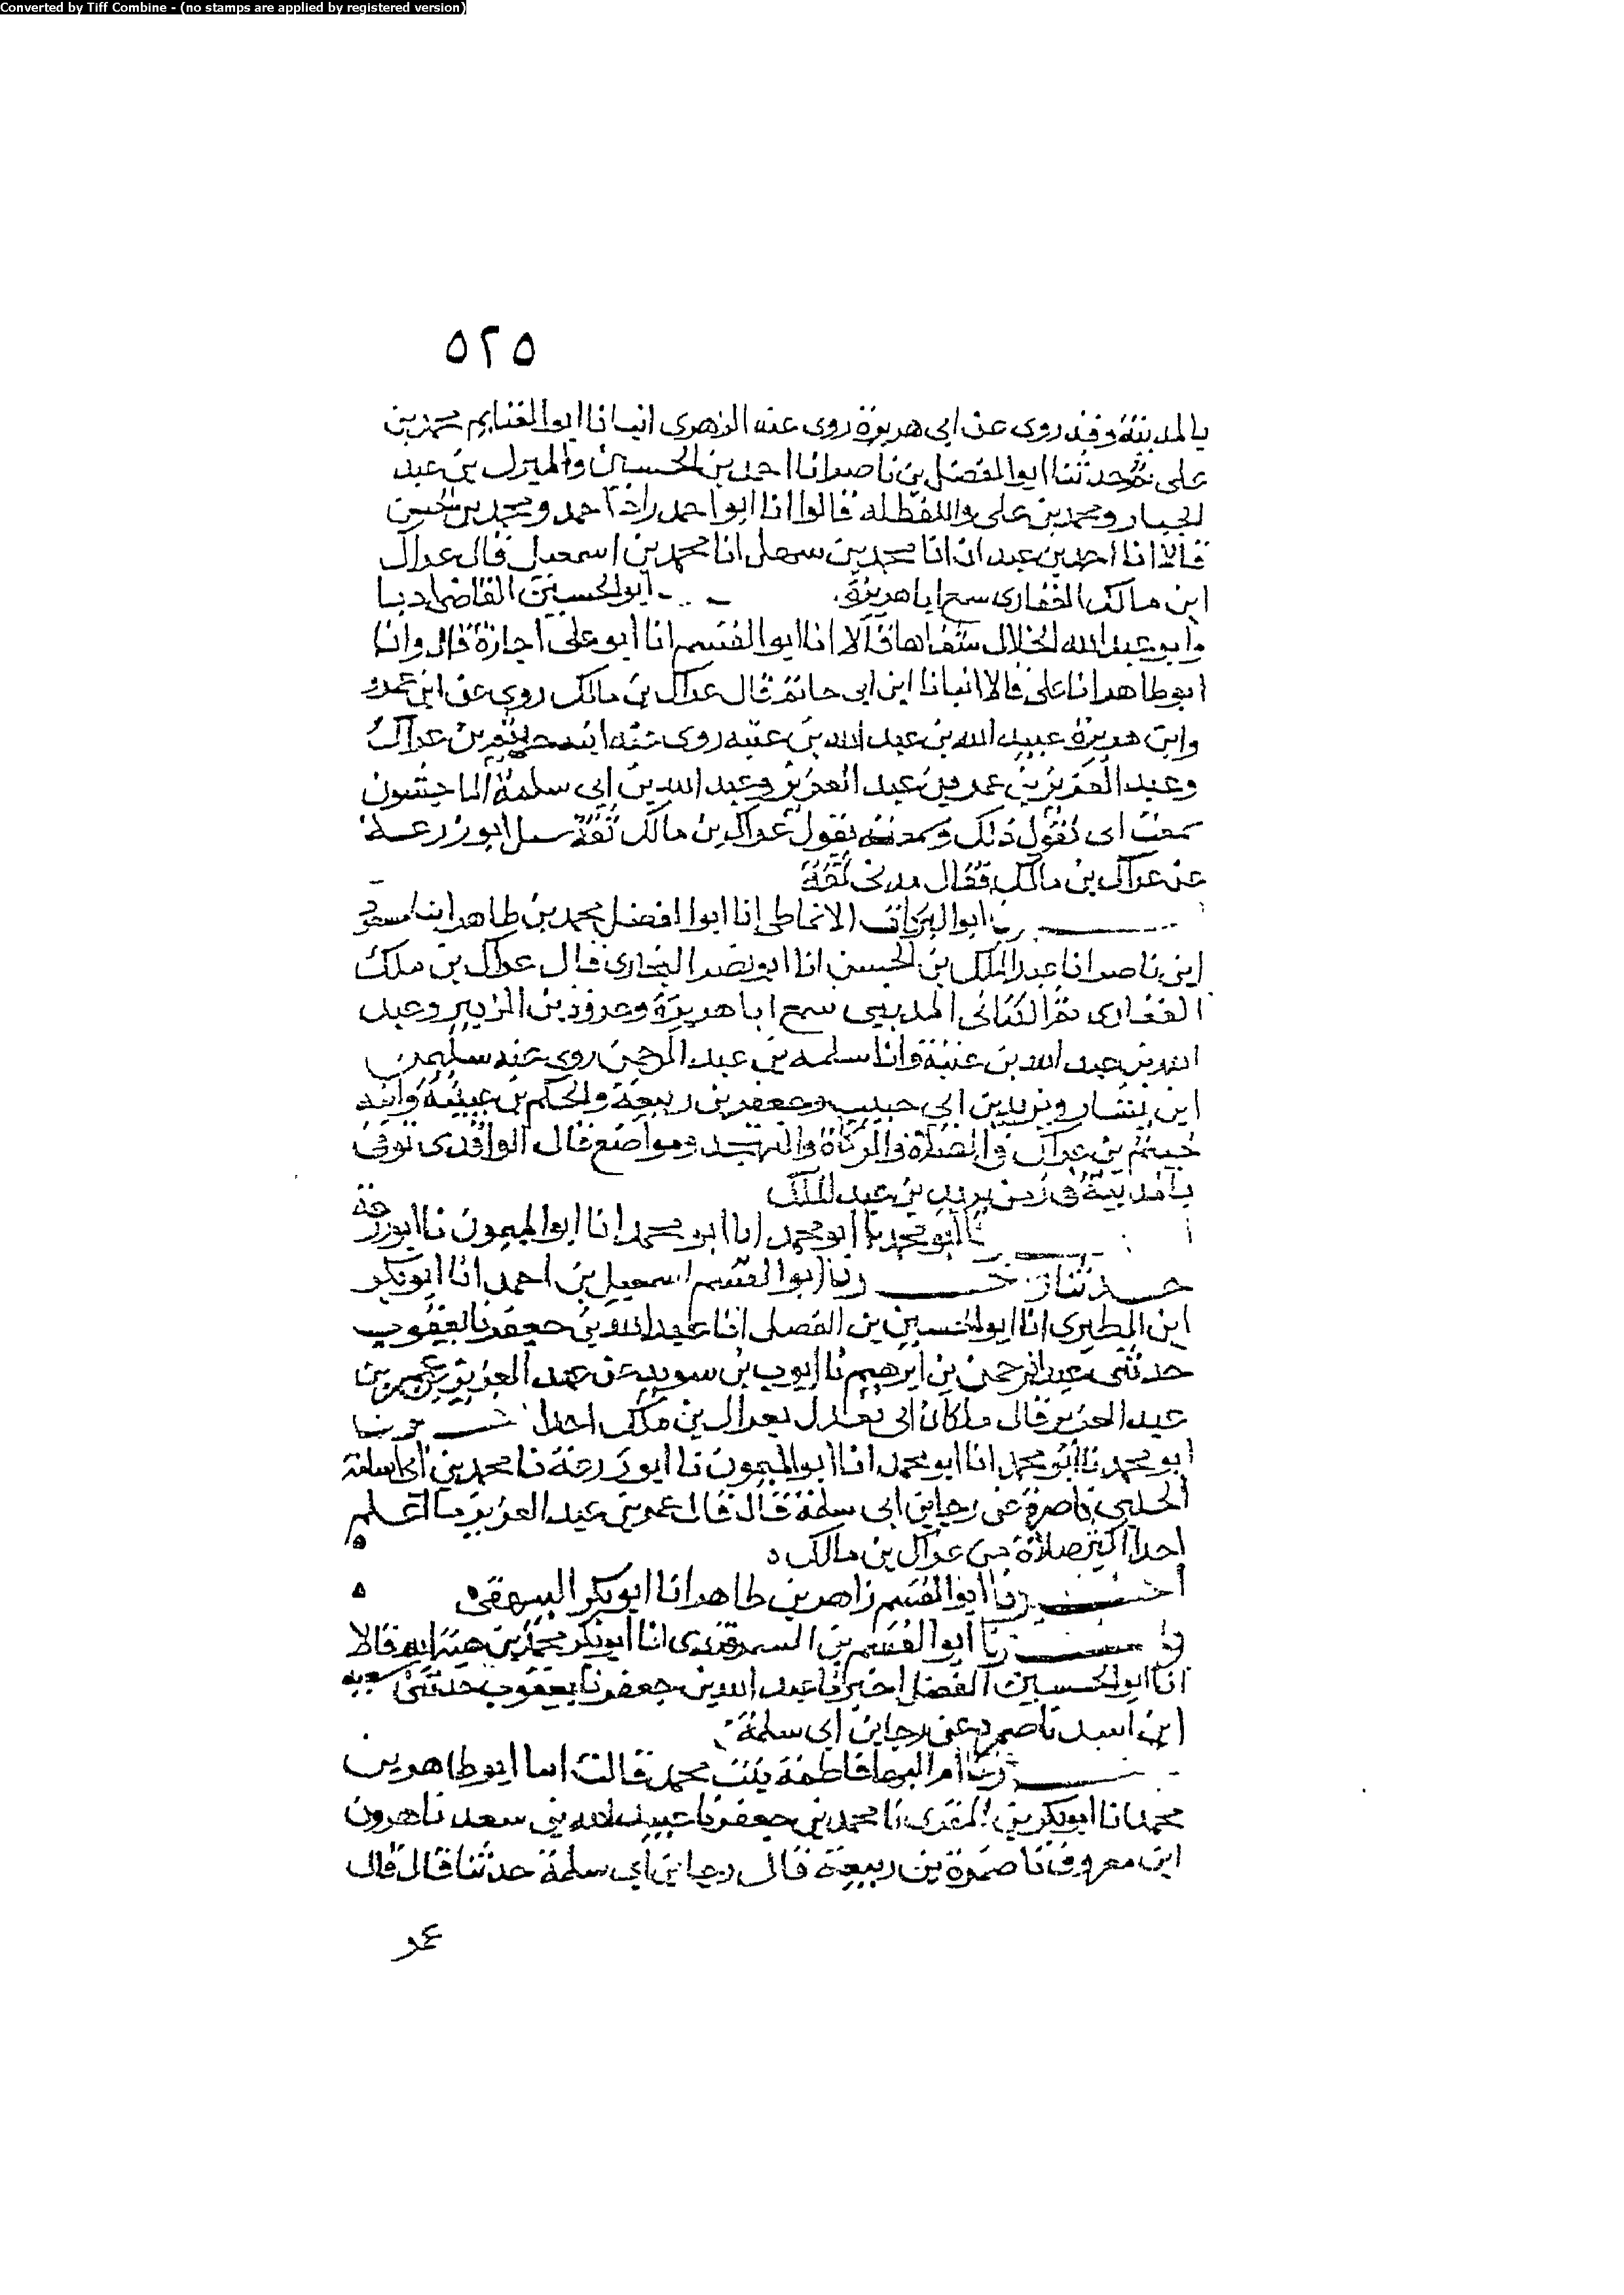 Converted by Tiff Combine - (no stamps are applied by registered version)
٥٢٥
بالمدينة وقد روى عن ابى هريرة روى عنه الزهرى انبانا ابوا لغنايم محمد بن
على ثم حدثنا ابوا لفضل بن ناصر انا احمد بن الحسين والمبرك بن عبد
الجبار ومحمد بن على واللفظ له قالوا انا ابو احمد زاد احمد ومحمد بن الحسن
قالا انا احمد بن عبدان انا محمد بن سهل انا محمد بن اسمعيل قال عراك
ابن مالك الغفارى سمع ابا هريرة ابو الحسين القاضى اديبا
وابو عبد الله الخلال شفاها قالا انا ابوا لقسم انا ابو على اجازة قال وانا
ابو طاهر انا على قالا انبانا ابن ابى حاتم قال عراك بن مالك روى عن ابن عمرو
وابى هريرة عبيد الله بن عبد الله بن عتبه روى عنه ابنه خيثم بن عراك
وعبد العزيز بن عمر بن عبد العزيز وعبد الله بن ابى سلمة الماجشون
سمعت ابى يقول ذلك وسمعته يقول عراك بن مالك ثقة سيل ابو زرعة
عن عراك بن مالك فقال مدنى ثقة
نا ابوا لبركات الانماطى انا ابوا لفضل محمد بن طاهر انا مسعود
ابن ناصر انا عبد الملك بن الحسن انا ابو نصر البخارى قال عراك بن ملك
الغفارى ثم الكنانى المدينى سمع ابا هريرة وعروة بن الزبير وعبيد
الله بن عبد الله بن عتبة وابا سلمه بن عبد الرحمن روى عنه سليمن
ابن يسار ويزيد بن ابى حبيب وجعفر بن ربيعة والحكم بن عتيبة وابنه
خيثم بن عراك فى الصلاة والزكاة ومواضع قال الواقدى توفى
بالمدينة فى زمن يزيد بن عبد الملك
نا ابو محمد نا ابو محمد انا ابو محمد انا ابوا لميمون نا ابو زرعة
حدثنا رنا ابوا لقسم اسمعيل بن احمد انا ابو بكر
ابن الطبرى انا ابوا لحسين بن الفضل انا عبد الله بن جعفر نا يعقوب
حدثنى عبد الرحمن بن ابرهيم نا ايوب بن سويد عن عبد العزيز بن عمر بن
عبد العزيز قال ما كان ابى يعدل بعراك بن ملك احدا رنا
ابو محمد نا ابو محمد انا ابو محمد انا ابوا لميمون نا ابو زرعة نا محمد بن ابى اسامة
الحلبى نا ضمرة عن رجا بن ابى سلمة قال قال عمر بن عبد العزيز ما اعلم
احدا اكثر صلاة من عراك بن مالك ه
اخبرنا ابوا لقسم زاهر بن طاهر انا ابو بكر البيهقى ه
نا ابوا لقسم بن السمرقندى انا ابو بكر محمد بن هبة الله قالا
انا ابوا لحسين الفضل اخبرنا عبد الله بن جعفر نا يعقوب حدثنى سعيد
ابن اسد نا ضمرة عن رجا بن ابى سلمة
رنا ام البها فاطمة بنت محمد قالت انا ابو طاهر بن
محمد انا ابو بكر بن المقرى نا محمد بن جعفر نا عبيد الله بن سعد نا هرون
ابن معروف نا ضمرة بن ربيعة قال رجا بن ابى سلمة حدثنا قال قال
عمر